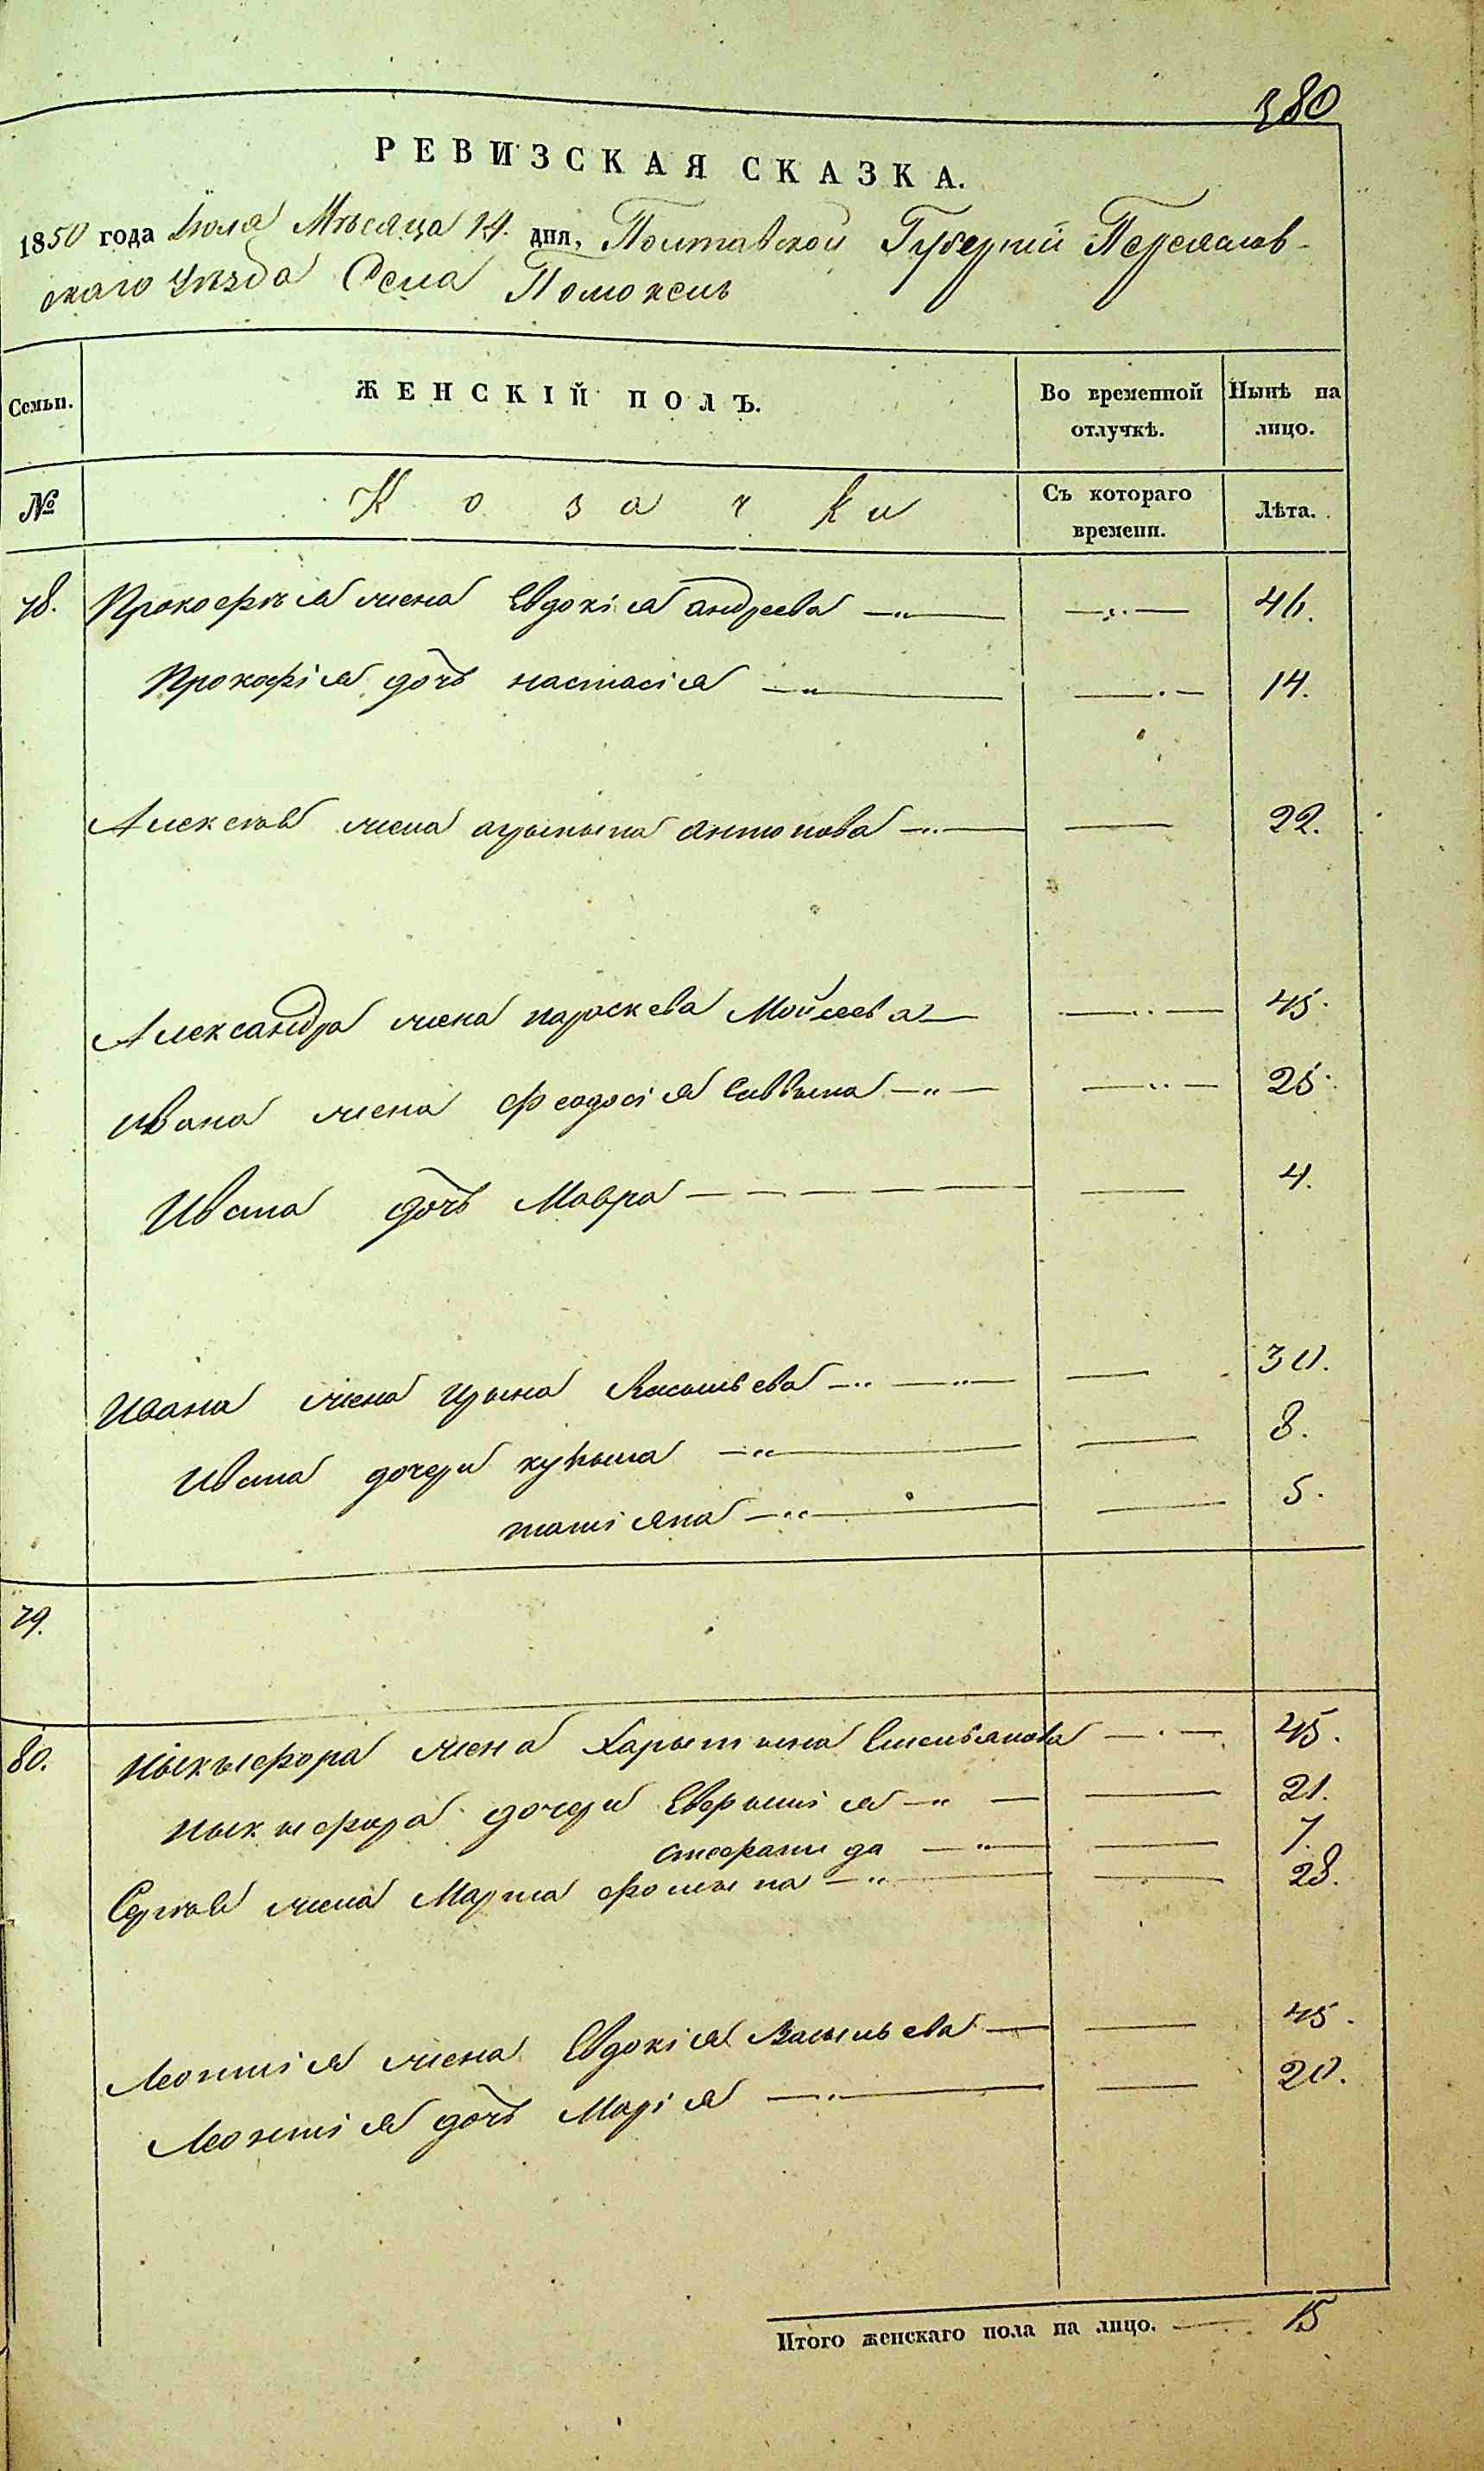 380
РЕВИЗСКАЯ СКАЗКА.
1850 года Іюля Мѣсяца 14. дня, Полтавской Губерніи Переяслов-
скаго уѣзда Села Помоклъ
Семьи. ЖЕНСКІЙ ПОЛЪ. Во временной отлучкѣ. Нынѣ на лицо.
№ Козачки Съ котораго времени. Лѣта.
78. Прокофія жена Евдокія андреева 46.
Прокофія дочь настасія 14.
Алексѣя жена арынына антонова 22.
Александра жена параскева Мойсеева 45.
ивана жена феодосія саввына 25.
Ивана дочь Мавра 4.
Ивана жена Ирына Васильева 30.
Ивана дочери 8.
татіяна 5.
79.
80. Ныкыфора жена Харытына Емельянова 45.
ныкыфора дочери Евфымія 21.
стефанида 7.
Сергѣя жена Марѳа фомына 28.
Леонтія жена Евдокія Васыльева 45.
Леонтія дочь Марія 20.
Итого женскаго пола на лицо. 15